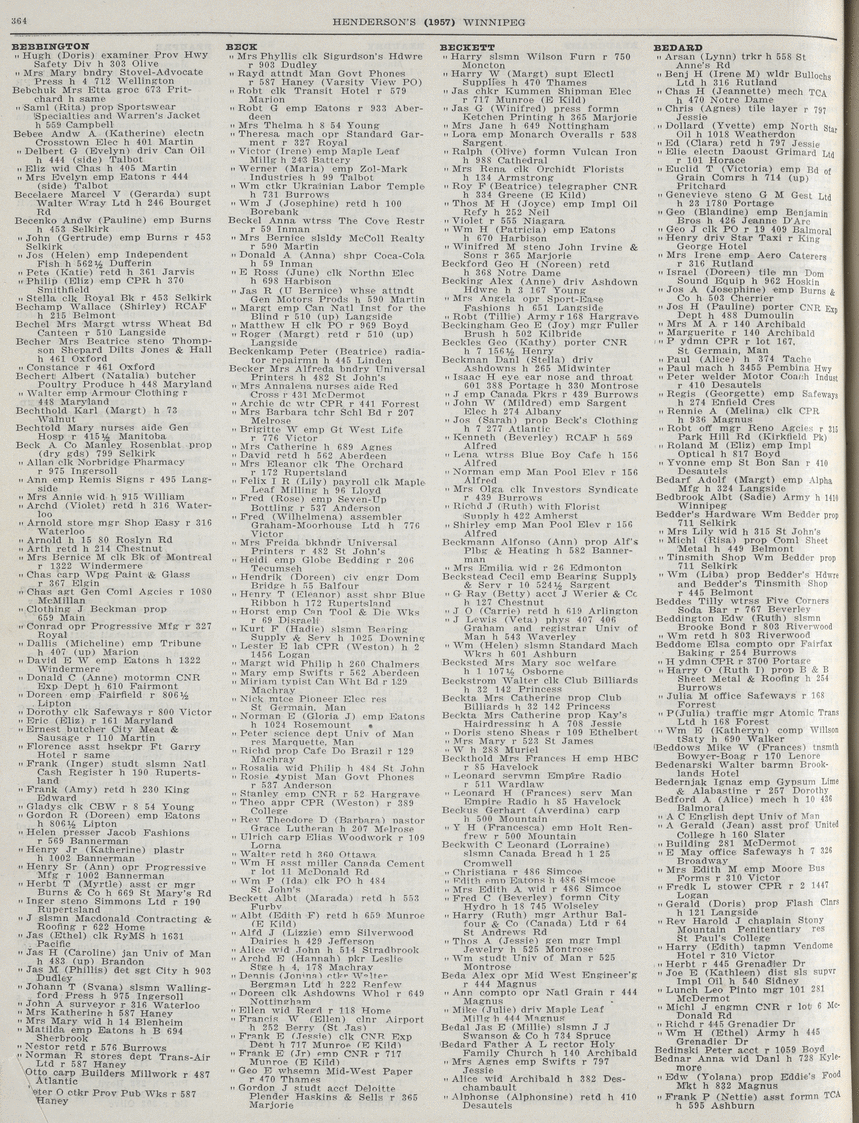 364
HENDERSON'S (1957) WINNIPEG
BEBBINGTON
" Hugh (Doris) examiner Prov Hwy
Safety Div h 303 Olive
" Mrs Mary bndry Stovel-Advocate
Press h 4 712 Wellington
Bebchuk Mrs Etta groc 673 Prit-
chard h same
" Saml (Rita) prop Sportswear
Specialties and Warren's Jacket
h 559 Campbell
Bebee Andw A (Katherine) electn
Crosstown Elec h 401 Martin
" Delbert G (Evelyn) driv Can Oil
h 444 (side) Talbot
" Eliz wid Chas h 405 Martin
" Mrs Evelyn emp Eatons r 444
(side) Talbot
Becelaere Marcel V (Gerarda) supt
Walter Wray Ltd h 246 Bourget
Rd
Becenko Andw (Pauline) emp Burns
h 453 Selkirk
" John (Gertrude) emp Burns r 453
Selkirk
" Jos (Helen) emp Independent
Fish h 562½ Dufferin
" Pete (Katie) retd h 361 Jarvis
" Philip (Eliz) emp CPR h 370
Smithfield
" Stella clk Royal Bk r 453 Selkirk
Bechamp Wallace (Shirley) RCAF
h 215 Belmont
Bechel Mrs Margt wtrss Wheat Bd
Canteen r 510 Langside
Becher Mrs Beatrice steno Thomp-
son Shepard Dilts Jones & Hall
h 461 Oxford
" Constance r 461 Oxford
Bechert Albert (Natalia) butcher
Poultry Produce h 448 Maryland
" Walter emp Armour Clothing r
448 Maryland
Bechthold Karl (Margt) h 73
Walnut
Bechtold Mary nurses aide Gen
Hosp r 415½ Manitoba
Beck A Co Manley Rosenblat prop
(dry gds) 799 Selkirk
" Allan clk Norbridge Pharmacy
r 975 Ingersoll
" Ann emp Remis Signs r 495 Lang-
side
" Mrs Annie wid h 915 William
" Archd (Violet) retd h 316 Water-
loo
" Arnold store mgr Shop Easy r 316
Waterloo
" Arnold h 15 80 Roslyn Rd
" Arth retd h 214 Chestnut
" Mrs Bernice M clk Bk of Montreal
r 1322 Windermere
" Chas carp Wpg Paint & Glass
r 367 Elgin
" Chas agt Gen Coml Agcies r 1080
McMillan
" Clothing J Beckman prop
659 Main
" Conrad opr Progressive Mfg r 327
Royal
" Dallis (Micheline) emp Tribune
h 407 (up) Martin
" David E W emp Eatons h 1322
Windermere
" Donald C (Anne) motormn CNR
Exp Dept h 610 Fairmont
" Doreen emp Fairfield r 806½
Lipton
" Dorothy clk Safeways r 800 Victor
" Eric (Eliz) r 161 Maryland
" Ernest butcher City Meat &
Sausage r 110 Martin
" Florence asst hsekpr Ft Garry
Hotel r same
" Frank (Inger) studt slsmn Natl
Cash Register h 190 Ruperts-
land
" Frank (Amy) retd h 230 King
Edward
" Gladys clk CBW r 8 54 Young
" Gordon R (Doreen) emp Eatons
h 806½ Lipton
" Helen presser Jacob Fashions
r 569 Bannerman
" Henry Jr (Katherine) plastr
h 1002 Bannerman
" Henry Sr (Ann) opr Progressive
Mfg r 1002 Bannerman
" Herbt T (Myrtle) asst cr mgr
Burns & Co h 669 St Mary's Rd
" Inger steno Simmons Ltd r 190
Rupertsland
" J slsmn Macdonald Contracting &
Roofing r 622 Home
" Jas (Ethel) clk RyMS h 1631
Pacific
" Jas H (Caroline) jan Univ of Man
h 483 (up) Brandon
" Jas M (Phillis) det sgt City h 903
Dudley
" Johann T (Svana) slsmn Walling-
ford Press h 975 Ingersoll
" John A surveyor r 316 Waterloo
" Mrs Katherine h 587 Haney
" Mrs Mary wid h 14 Blenheim
" Matilda emp Eatons h B 694
Sherbrook
" Nestor retd r 576 Burrows
" Norman R stores dept Trans-Air
Ltd r 587 Haney
" Otto carp Builders Millwork r 487
Atlantic
Peter O ctkr Prov Pub Wks r 587
Haney
BECK
" Mrs Phyllis clk Sigurdson's Hdwre
r 903 Dudley
" Rayd attndt Man Govt Phones
r 587 Haney (Varsity View PO)
" Robt clk Transit Hotel r 579
Marion
" Robt G emp Eatons r 933 Aber-
deen
" Mrs Thelma h 8 54 Young
" Theresa mach opr Standard Gar-
ment r 327 Royal
" Victor (Irene) emp Maple Leaf
Millg h 243 Battery
" Werner (Maria) emp Zol-Mark
Industries h 99 Talbot
" Wm ctkr Ukrainian Labor Temple
h 731 Burrows
" Wm J (Josephine) retd h 100
Borebank
Beckel Anna wtrss The Cove Restr
r 59 Inman
" Mrs Bernice slsldy McColl Realty
r 590 Martin
" Donald A (Anna) shpr Coca-Cola
h 59 Inman
" E Ross (June) clk Northn Elec
h 698 Harbison
" Jas R (U Bernice) whse attndt
Gen Motors Prods h 590 Martin
" Margt emp Can Natl Inst for the
Blind r 510 (up) Langside
" Matthew H clk PO r 969 Boyd
" Roger (Margt) retd r 510 (up)
Langside
Beckenkamp Peter (Beatrice) radia-
tor repairmn h 445 Linden
Becker Mrs Alfreda bndry Universal
Printers h 482 St John's
" Mrs Annalena nurses aide Red
Cross r 431 McDermot
" Archie dc wtr CPR r 441 Forrest
" Mrs Barbara tchr Schl Bd r 207
Melrose
" Brigitte W emp Gt West Life
r 776 Victor
" Mrs Catherine h 689 Agnes
" David retd h 562 Aberdeen
" Mrs Eleanor clk The Orchard
r 172 Rupertsland
" Felix I R (Lily) payroll clk Maple
Leaf Milling h 96 Lloyd
" Fred (Rose) emp Seven-Up
Bottling r 537 Anderson
" Fred (Wilhelmena) assembler
Graham-Moorhouse Ltd h 776
Victor
" Mrs Freida bkbndr Universal
Printers r 482 St John's
" Heidi emp Globe Bedding r 206
Tecumseh
" Hendrik (Doreen) civ engr Dom
Bridge h 55 Balfour
" Henry T (Eleanor) asst shpr Blue
Ribbon h 172 Rupertsland
" Horst emp Can Tool & Die Wks
r 69 Disraeli
" Kurt F (Hadie) slsmn Bearing
Supply & Serv h 1025 Downing
" Lester E lab CPR (Weston) h 2
1456 Logan
" Margt wid Philip h 260 Chalmers
" Mary emp Swifts r 562 Aberdeen
" Miriam typist Can Wht Bd r 129
Machray
" Nick mtce Pioneer Elec res
St Germain, Man
" Norman E (Gloria J) emp Eatons
h 1024 Rosemount
" Peter science dept Univ of Man
res Marquette, Man
" Richd prop Cafe Do Brazil r 129
Machray
" Rosalia wid Philip h 484 St John
" Rosie typist Man Govt Phones
r 537 Anderson
" Stanley emp CNR r 52 Hargrave
" Theo appr CPR (Weston) r 389
College
" Rev Theodore D (Barbara) pastor
Grace Lutheran h 207 Melrose
" Ulrich carp Elias Woodwork r 109
Lorna
" Walter retd h 360 Ottawa
" Wm H asst miller Canada Cement
r lot 11 McDonald Rd
" Wm P (Ida) clk PO h 484
St John's
Beckett Albt (Marada) retd h 553
Furby
" Albt (Edith F) retd h 659 Munroe
(E Kild)
" Alfd J (Lizzie) emp Silverwood
Dairies h 429 Jefferson
" Alice wid John h 514 Stradbrook
" Archd E (Hannah) pkr Leslie
Stge h 4, 178 Machray
" Dennis (Jonina) ctkr Walter
Bergman Ltd h 222 Renfew
" Doreen clk Ashdowns Whol r 649
Nottingham
" Ellen wid Regd r 118 Home
" Francis W (Ellen) clnr Airport
h 252 Berry (St Jas)
" Frank E (Jessie) clk CNR Exp
Dent h 717 Munroe (E Kild)
" Frank E (Jr) emp CNR r 717
Munroe (E Kild)
" Geo E whsemn Mid-West Paper
r 470 Thames
" Gordon J studt acct Deloitte
Plender Haskins & Sells r 365
Marjorie
BECKETT
" Harry slsmn Wilson Furn r 750
Moncton
" Harry W (Margt) supt Electl
Supplies h 470 Thames
" Jas chkr Kummen Shipman Elec
r 717 Munroe (E Kild)
" Jas G (Winifred) press formn
Ketchen Printing h 365 Marjorie
" Mrs Jane h 649 Nottingham
" Lora emp Monarch Overalls r 538
Sargent
" Ralph (Olive) formn Vulcan Iron
h 988 Cathedral
" Mrs Rena clk Orchidt Florists
h 134 Armstrong
" Roy F (Beatrice) telegrapher CNR
h 334 Greene (E Kild)
" Thos M H (Joyce) emp Impl Oil
Refy h 252 Neil
" Violet r 555 Niagara
" Wm H (Patricia) emp Eatons
h 670 Harbison
" Winifred M steno John Irvine &
Sons r 365 Marjorie
Beckford Geo H (Noreen) retd
h 368 Notre Dame
Becking Alex (Anne) driv Ashdown
Hdwre h 3 167 Young
" Mrs Angela opr Sport-Ease
Fashions h 651 Langside
" Robt (Tillie) Army r 168 Hargrave
Beckingham Geo E (Joy) mgr Fuller
Brush h 502 Kilbride
Beckles Geo (Kathy) porter CNR
h 7 156½ Henry
Beckman Danl (Stella) driv
Ashdowns h 265 Midwinter
" Isaac H eye ear nose and throat
601 388 Portage h 330 Montrose
" J emp Canada Pkrs r 439 Burrows
" John W (Mildred) emp Sargent
Elec h 274 Albany
" Jos (Sarah) prop Beck's Clothing
h 7 277 Atlantic
" Kenneth (Beverley) RCAF h 569
Alfred
" Lena wtrss Blue Boy Cafe h 156
Alfred
" Norman emp Man Pool Elev r 156
Alfred
" Mrs Olga clk Investors Syndicate
r 439 Burrows
" Richd J (Ruth) with Florist
Supply h 422 Amherst
" Shirley emp Man Pool Elev r 156
Alfred
Beckmann Alfonso (Ann) prop Alf's
Plbg & Heating h 582 Banner-
man
" Mrs Emilia wid r 26 Edmonton
Beckstead Cecil emp Bearing Supply
& Serv r 10 524½ Sargent
" G Ray (Betty) acct J Werier & Co
h 127 Chestnut
" J O (Carrie) retd h 619 Arlington
" J Lewis (Veta) phys 407 406
Graham and registrar Univ of
Man h 543 Waverley
" Wm (Helen) slsmn Standard Mach
Wks h 601 Ashburn
Becksted Mrs Mary soc welfare
h 1 107½ Osborne
Beckstrom Walter clk Club Billiards
h 32 142 Princess
Beckta Mrs Catherine prop Club
Billiards h 32 142 Princess
Beckta Mrs Catherine prop Kay's
Hairdressing h A 708 Jessie
" Doris steno Sheas r 109 Ethelbert
" Mrs Mary r 523 St James
" W h 288 Muriel
Beckthold Mrs Frances H emp HBC
r 85 Havelock
" Leonard servmn Empire Radio
r 511 Wardlaw
" Leonard H (Frances) serv Man
Empire Radio h 85 Havelock
Beckus Gerhart (Averdina) carp
h 500 Mountain
" Y H (Francesca) emp Holt Ren-
frew r 500 Mountain
Beckwith C Leonard (Lorraine)
slsmn Canada Bread h 1 25
Cromwell
" Christiana r 486 Simcoe
" Edith emp Eatons h 486 Simcoe
" Mrs Edith A wid r 486 Simcoe
" Fred C (Beverley) formn City
Hydro h 18 745 Wolseley
" Harry (Ruth) mgr Arthur Bal-
four & Co (Canada) Ltd r 64
St Andrews Rd
" Thos A (Jessie) gen mgr Impl
Jewelry h 525 Montrose
" Wm studt Univ of Man r 525
Montrose
Beda Alex opr Mid West Engineer'g
r 444 Magnus
" Ann compto opr Natl Grain r 444
Magnus
" Mike (Julie) driv Maple Leaf
Millg h 444 Magnus
Bedal Jas E (Millie) slsmn J J
Swanson & Co h 734 Spruce
Bedard Father A L rector Holy
Family Church h 140 Archibald
" Mrs Agnes emp Swifts r 797
Jessie
" Alice wid Archibald h 382 Des-
chambault
" Alphonse (Alphonsine) retd h 410
Desautels
BEDARD
" Arsan (Lynn) trkr h 558 St
Anne's Rd
" Benj H (Irene M) wldr Bullochs
Ltd h 316 Rutland
" Chas H (Jeannette) mech TCA
h 470 Notre Dame
" Chris (Agnes) tile layer r 797
Jessie
" Dollard (Yvette) emp North Star
Oil h 1018 Weatherdon
" Ed (Clara) retd h 797 Jessie
" Elie electn Daoust Grimard Ltd
r 101 Horace
" Euclid T (Victoria) emp Bd of
Grain Comrs h 714 (up)
Pritchard
" Genevieve steno G M Gest Ltd
h 23 1780 Portage
" Geo (Blandine) emp Benjamin
Bros h 426 Jeanne D'Arc
" Geo J clk PO r 19 409 Balmoral
" Henry driv Star Taxi r King
George Hotel
" Mrs Irene emp Aero Caterers
r 316 Rutland
" Israel (Doreen) tile mn Dom
Sound Equip h 962 Hoskin
" Jos A (Josephine) emp Burns &
Co h 503 Cherrier
" Jos H (Pauline) porter CNR Exp
Dept h 488 Dumoulin
" Mrs M A r 140 Archibald
" Marguerite r 140 Archibald
" P ydmn CPR r lot 167,
St Germain, Man
" Paul (Alice) h 374 Tache
" Paul mach h 3455 Pembina Hwy
" Peter welder Motor Coach Indust
r 410 Desautels
" Regis (Georgette) emp Safeways
h 274 Enfield Cres
" Rennie A (Melina) clk CPR
h 936 Magnus
" Robt off mgr Reno Agcies r 315
Park Hill Rd (Kirkfield Pk)
" Roland M (Eliz) emp Impl
Optical h 817 Boyd
" Yvonne emp St Bon San r 410
Desautels
Bedarf Adolf (Margt) emp Alpha
Mfg h 324 Langside
Bedbrook Albt (Sadie) Army h 1410
Winnipeg
Bedder's Hardware Wm Bedder prop
711 Selkirk
" Mrs Lily wid h 315 St John's
" Michl (Risa) prop Coml Sheet
Metal h 449 Belmont
" Tinsmith Shop Wm Bedder prop
711 Selkirk
" Wm (Liba) prop Bedder's Hdwre
and Bedder's Tinsmith Shop
r 445 Belmont
Beddes Tilly wtrss Five Corners
Soda Bar r 767 Beverley
Beddington Edw (Ruth) slsmn
Brooke Bond r 803 Riverwood
" Wm retd h 803 Riverwood
Beddome Elsa compto opr Fairfax
Baking r 254 Burrows
" H ydmn CPR r 3700 Portage
" Harry O (Ruth I) prop B & B
Sheet Metal & Roofing h 254
Burrows
" Julia M office Safeways r 168
Forrest
" P(Julia) traffic mgr Atomic Trans
Ltd h 168 Forest
" Wm E (Katheryn) comp Willson
tSaty h 690 Walker
Beddows Mike W (Frances) tnsmth
Bowyer-Boag r 170 Lenore
Bedenarski Walter barmn Brook-
lands Hotel
Bedernjak Ignaz emp Gypsum Lime
& Alabastine r 257 Dorothy
Bedford A (Alice) mech h 10 436
Balmoral
" A C English dept Univ of Man
" A Gerald (Jean) asst prof United
College h 160 Slater
" Building 281 McDermot
" E May office Safeways h 7 326
Broadway
" Mrs Edith M emp Moore Bus
Forms r 310 Victor
" Fredk L stower CPR r 2 1447
Logan
" Gerald (Doris) prop Flash Clnrs
h 121 Langside
" Rev Harold J chaplain Stony
Mountain Penitentiary res
St Paul's College
" Harry (Edith) tapmn Vendome
Hotel r 310 Victor
" Herbt r 445 Grenadier Dr
" Joe E (Kathleen) dist sls supvr
Impl Oil h 540 Sidney
" Lunch Leo Pinto mgr 101 281
McDermot
" Michl J engmn CNR r lot 6 Mc-
Donald Rd
" Richd r 445 Grenadier Dr
" Wm H (Ethel) Army h 445
Grenadier Dr
Bedinski Peter acct r 1059 Boyd
Bednar Anna wid Danl h 728 Kyle-
more
" Edw (Yolana) prop Eddie's Food
Mkt h 832 Magnus
" Frank P (Nettie) asst formn TCA
h 595 Ashburn